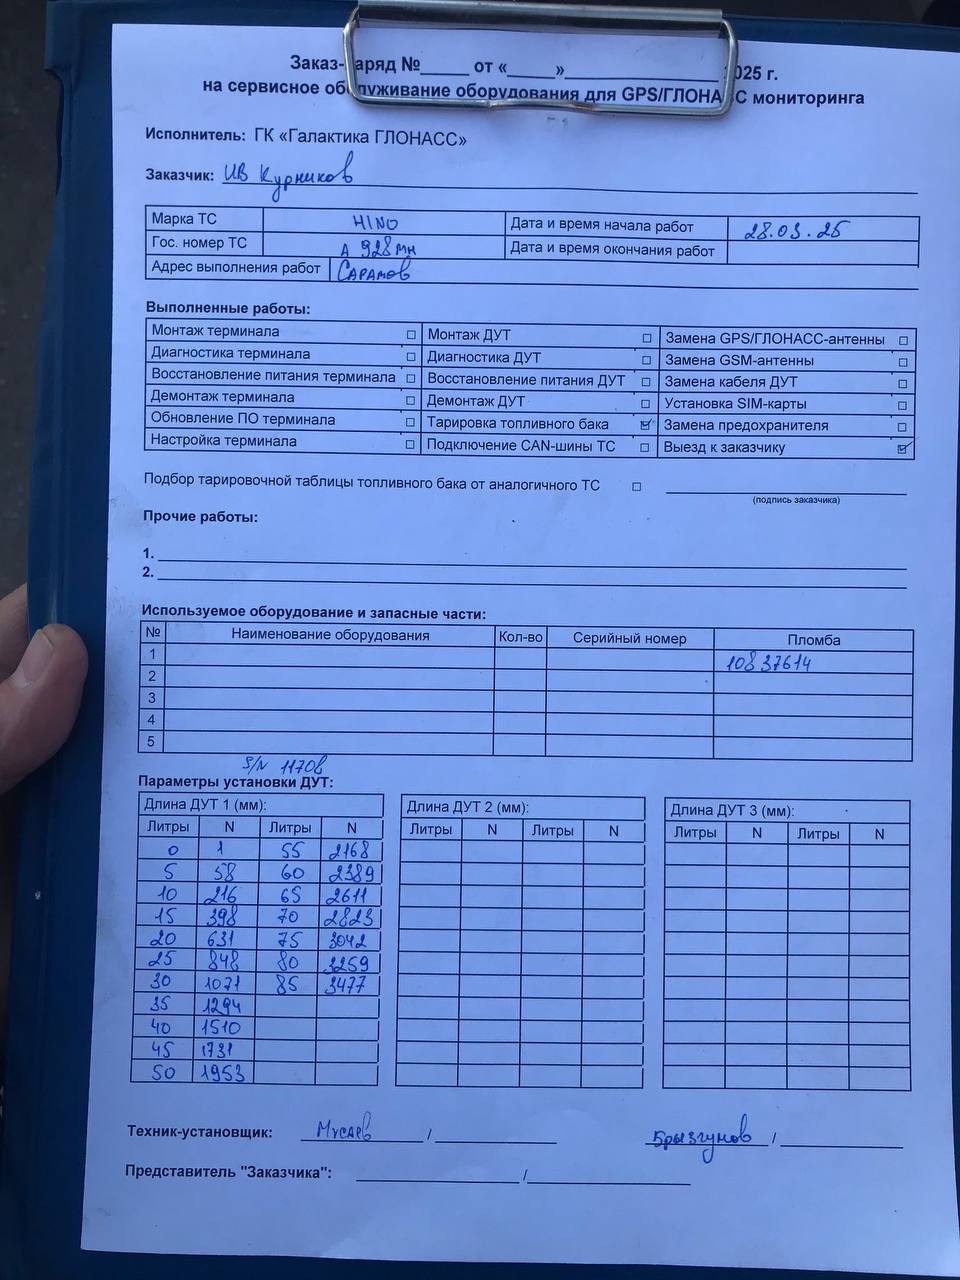 Заказ-наряд №_____ от «_____»________________ 2025 г.
на сервисное обслуживание оборудования для GPS/ГЛОНАСС мониторинга
Исполнитель: ГК «Галактика ГЛОНАСС»
Заказчик: ИВ Курников
Марка ТС HINO Дата и время начала работ 28.03.25
Гос. номер ТС А 928 МН Дата и время окончания работ
Адрес выполнения работ Саратов
Выполненные работы:
Монтаж терминала ☐ Монтаж ДУТ ☐ Замена GPS/ГЛОНАСС-антенны ☐
Диагностика терминала ☐ Диагностика ДУТ ☐ Замена GSM-антенны ☐
Восстановление питания терминала ☐ Восстановление питания ДУТ ☐ Замена кабеля ДУТ ☐
Демонтаж терминала ☐ Демонтаж ДУТ ☐ Установка SIM-карты ☐
Обновление ПО терминала ☐ Тарировка топливного бака ☑ Замена предохранителя ☐
Настройка терминала ☐ Подключение CAN-шины ТС ☐ Выезд к заказчику ☑
Подбор тарировочной таблицы топливного бака от аналогичного ТС ☐
(подпись заказчика)
Прочие работы:
1.
2.
Используемое оборудование и запасные части:
№ Наименование оборудования Кол-во Серийный номер Пломба
1 10837614
2
3
4
5
S/N 11708
Параметры установки ДУТ:
Длина ДУТ 1 (мм): Длина ДУТ 2 (мм): Длина ДУТ 3 (мм):
Литры N Литры N Литры N Литры N Литры N Литры N
0 1 55 2168
5 58 60 2389
10 216 65 2611
15 398 70 2823
20 631 75 3042
25 848 80 3259
30 1071 85 3477
35 1294
40 1510
45 1731
50 1953
Техник-установщик: Мусаев / Брызгунов /
Представитель "Заказчика": /